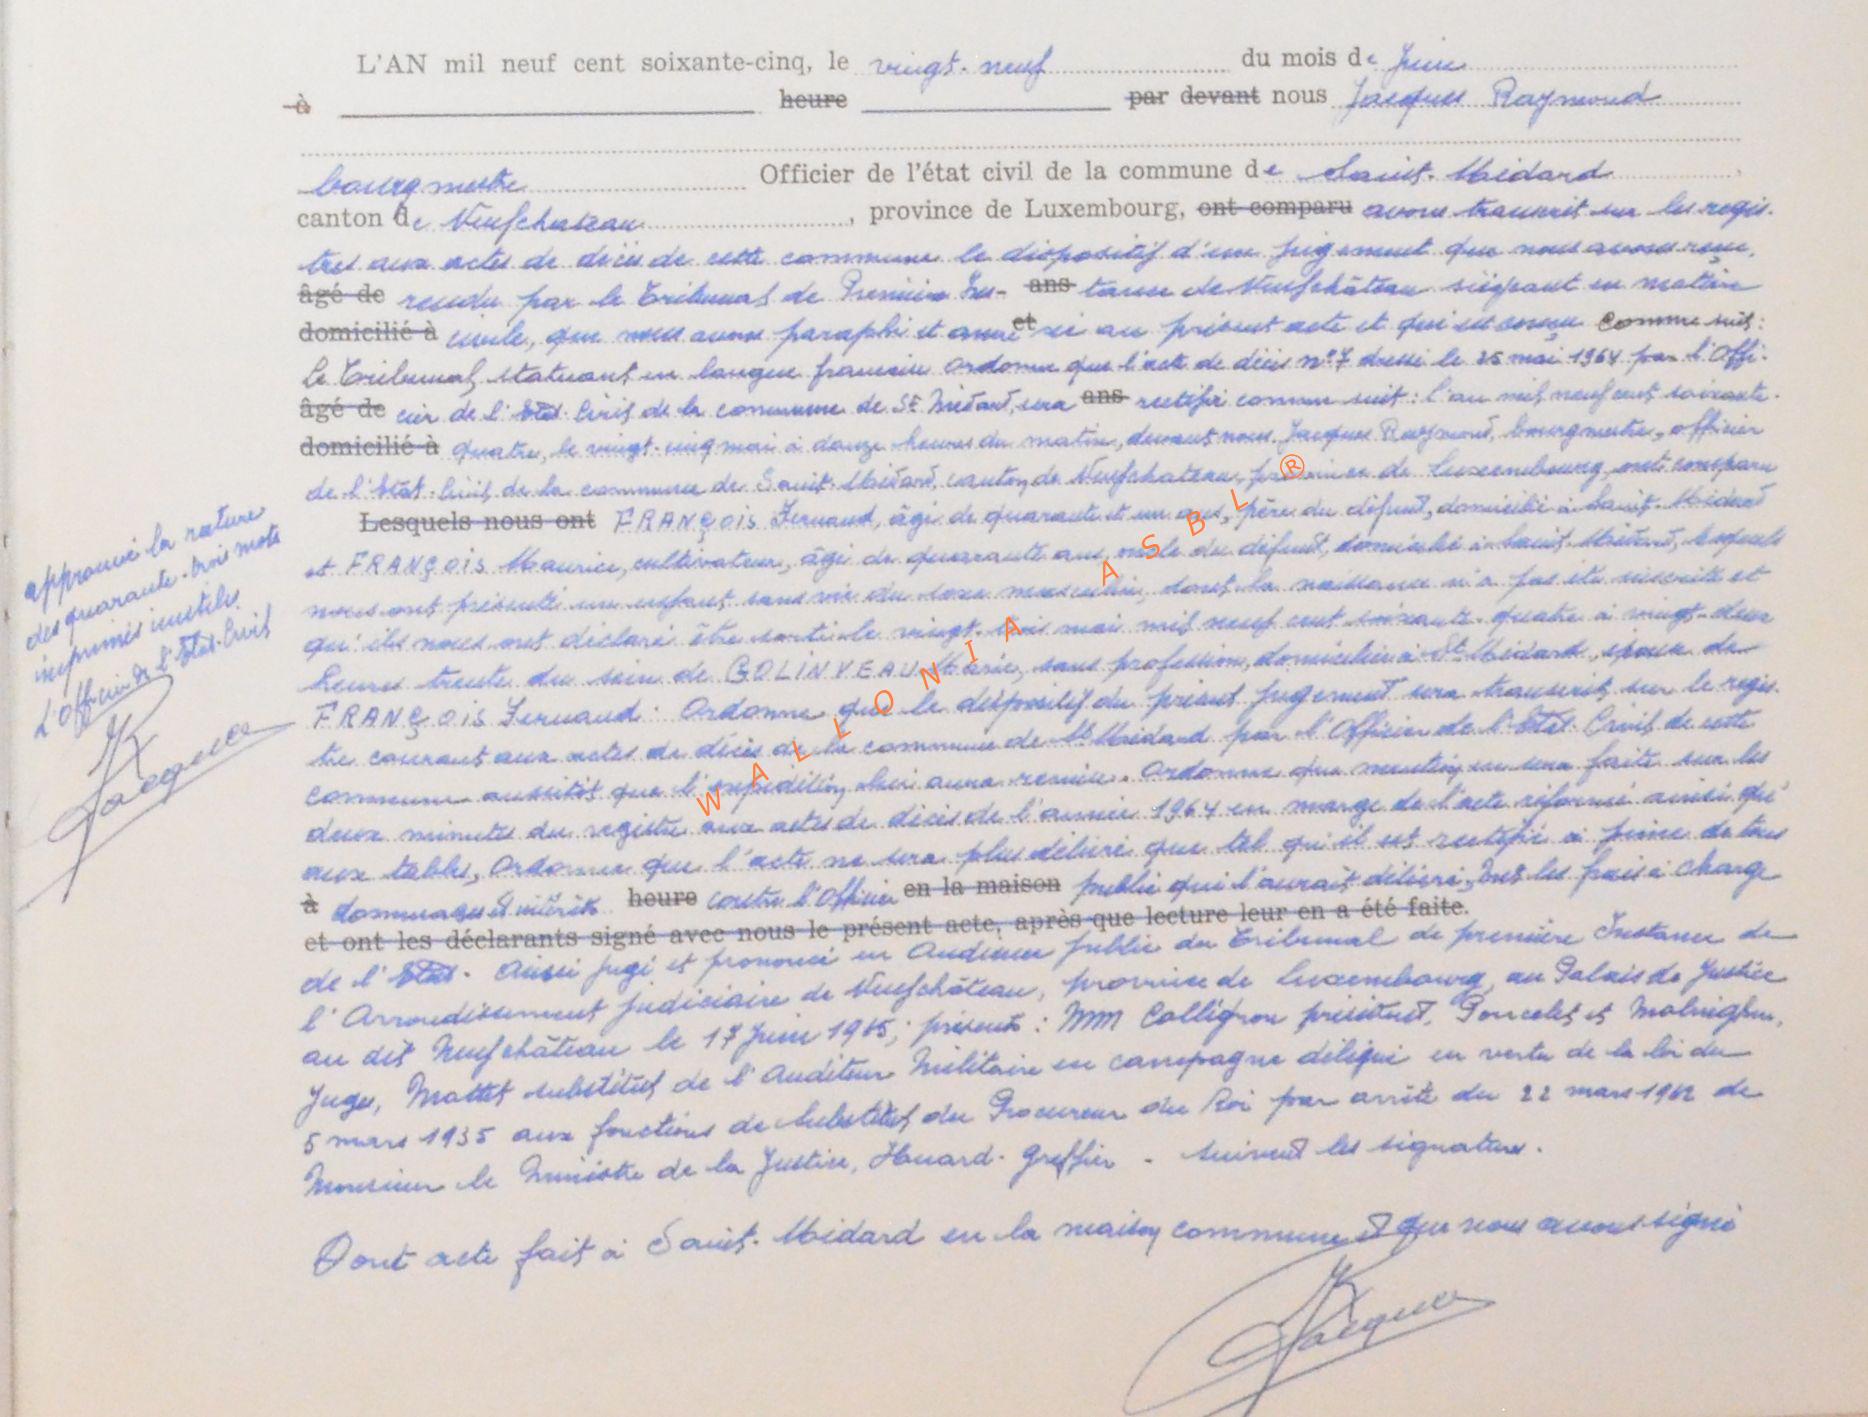 L'AN mil neuf cent soixante-cinq, le vingt-neuf du mois de Juin
à heure par devant nous Jacques Raymond
bourgmestre Officier de l'état civil de la commune de Saint-Médard
canton de Neufchateau, province de Luxembourg, ont comparu avons transcrit sur les regis-
tres aux actes de décès de cette commune le dispositif d'un jugement que nous avons reçu,
âgé de rendu par le Tribunal de Première Ins- ans tance de Neufchâteau siégeant en matière
domicilié à civile, que nous avons paraphé et annexé et au présent acte et qui est conçu comme suit:
Le Tribunal, statuant en langue française ordonne que l'acte de décès n°7 dressé le 25 mai 1964 par l'Offi-
âgé de cier de l'Etat-Civil de la commune de St Médard, sera ans rectifié comme suit: l'an mil neuf cent soixante-
domicilié à quatre, le vingt-cinq mai à heures du matin, devant nous Jacques Raymond, bourgmestre, officier
de l'Etat-Civil de la commune de Saint-Médard, canton de Neufchateau, province de Luxembourg, ont comparu
Lesquels nous ont FRANÇOIS Fernand, âgé de quarante et un ans, père du défunt, domicilié à Saint-Médard
et FRANÇOIS Maurice, cultivateur, âgé de quarante ans, oncle du défunt, domicilié à Saint-Médard, lesquels
nous ont présenté un enfant sans vie du sexe masculin, dont la naissance n'a pas été inscrite et
qu'ils nous ont déclaré être sorti le vingt-trois mai mil neuf cent soixante-quatre à vingt-deux
heures trente du sein de GOLINVEAU Marie, sans profession, domiciliée à St Médard, épouse de
FRANÇOIS Fernand. Ordonne que le dispositif du présent jugement sera transcrit sur le regis-
tre courant aux actes de décès de la commune de St Médard par l'Officier de l'Etat-Civil de cette
commune aussitôt que l'expédition lui aura remise. Ordonne que mention en sera faite sur les
deux minutes du registre aux actes de décès de l'année 1964 en marge de l'acte réformé ainsi qu'
aux tables, Ordonne que l'acte ne sera plus délivré que tel qu'il est rectifié à peine de tous
à dommages et intérêts heure contre l'Officier en la maison public qui l'aurait délivré, Met les frais à charge
et ont les déclarants signé avec nous le présent acte, après que lecture leur en a été faite.
de l'Etat. Ainsi jugé et prononcé en Audience public du Tribunal de première Instance de
l'Arrondissement judiciaire de Neufchâteau, province de Luxembourg, au Palais de Justice
au dit Neufchâteau le 17 Juin 1965; présents: MM Collignon président, Poncelet et
Juges, Mottet substitut de l'Auditeur Militaire en campagne délégué en vertu de la loi du
5 mars 1935 aux fonctions de Substitut du Procureur du Roi par arrêté du 22 mars 1962 de
Monsieur le Ministre de la Justice, Huard- Greffier. Suivent les signatures.
Dont acte fait à Saint-Médard en la maison commune et que nous avons signé
Jacques
approuvé la rature
des quarante-trois mots
imprimés inutiles.
L'Officier de l'Etat-Civil
Jacques
WALLONIA ASBL ®